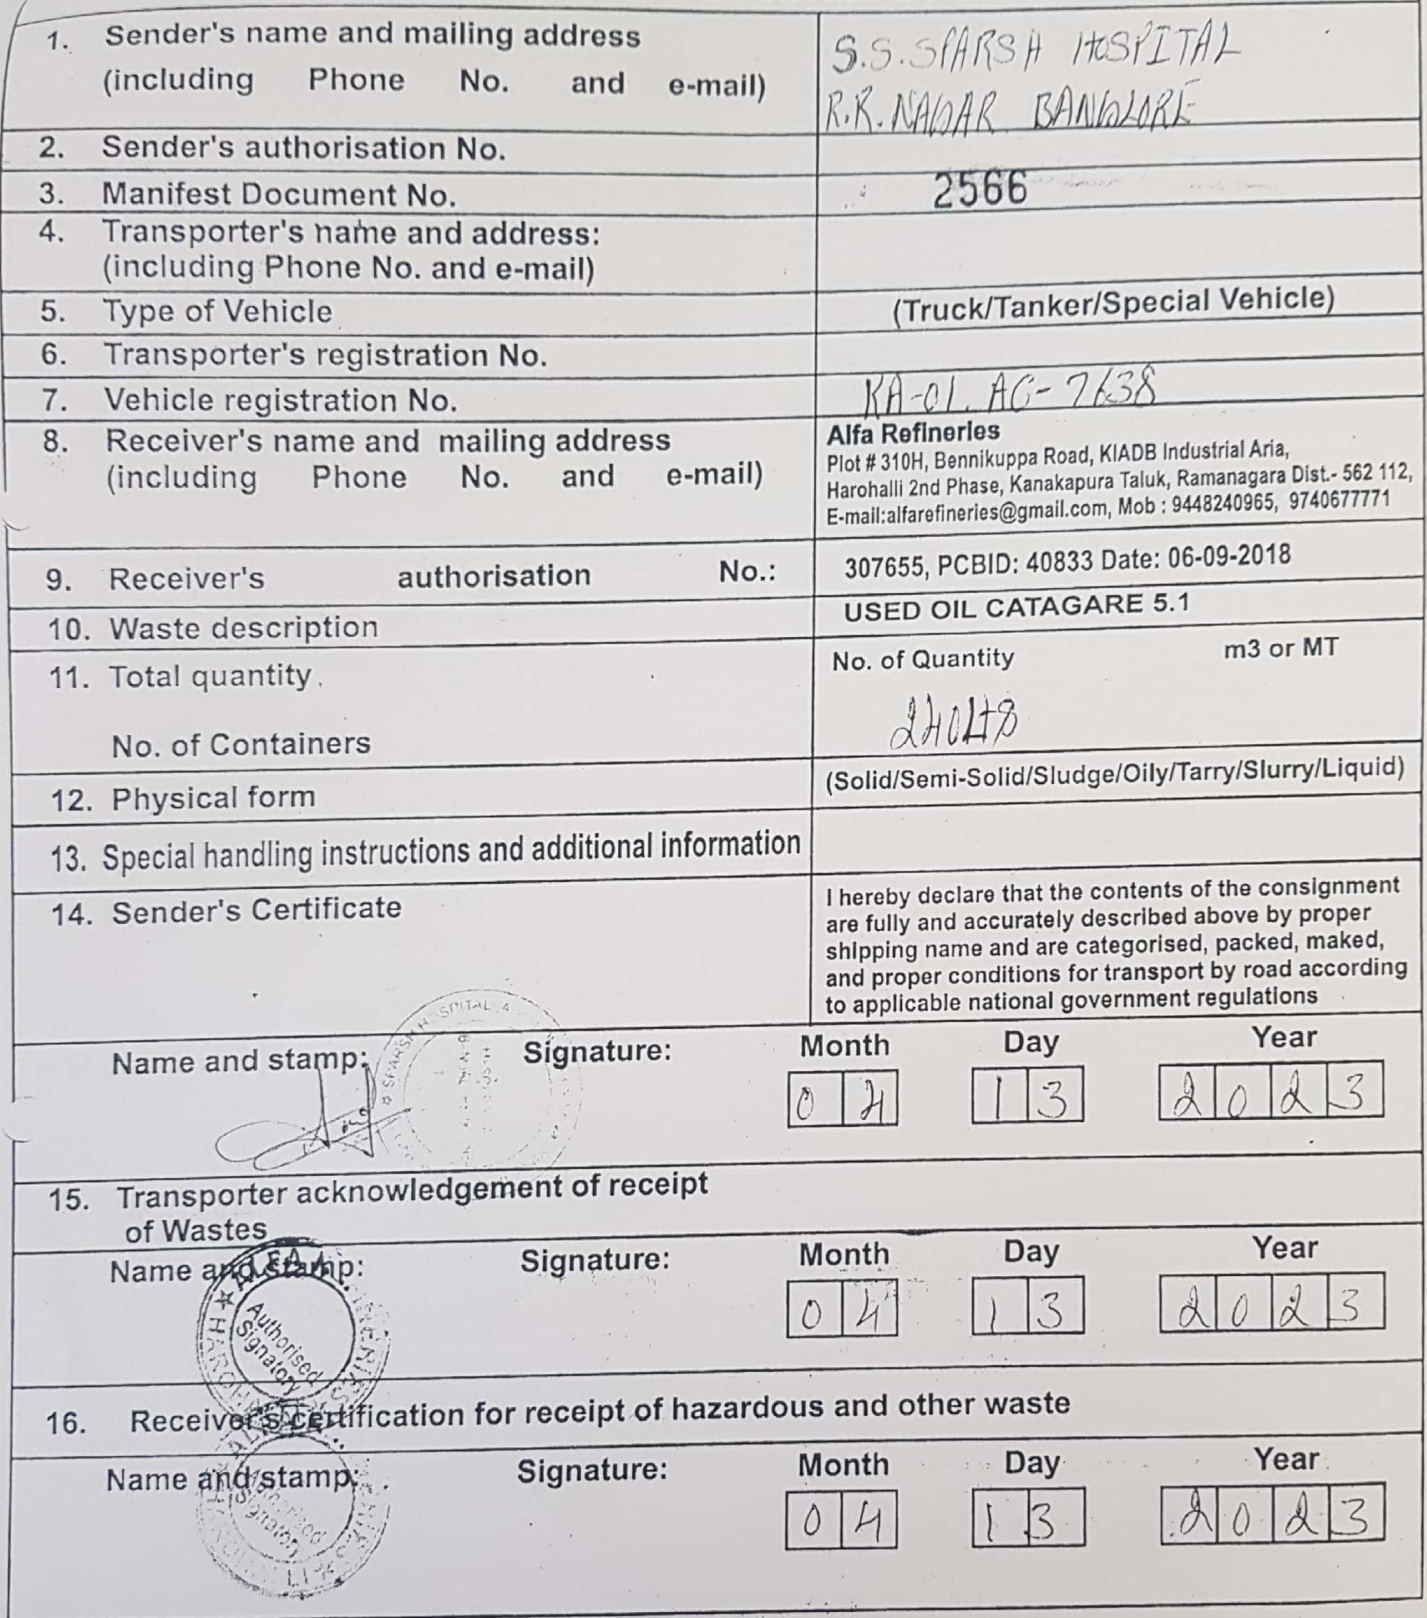 1. Sender's name and mailing address
(including Phone No. and e-mail)
S.S. SPARSH HOSPITAL
R.R. NAGAR BANGLORE
2. Sender's authorisation No.
3. Manifest Document No. 2566
4. Transporter's name and address:
(including Phone No. and e-mail)
5. Type of Vehicle (Truck/Tanker/Special Vehicle)
6. Transporter's registration No.
7. Vehicle registration No. KA-01 AG-7638
8. Receiver's name and mailing address
(including Phone No. and e-mail)
Alfa Refineries
Plot # 310H, Bennikuppa Road, KIADB Industrial Aria,
Harohalli 2nd Phase, Kanakapura Taluk, Ramanagara Dist.- 562 112,
E-mail:alfarefineries@gmail.com, Mob : 9448240965, 9740677771
9. Receiver's authorisation No.: 307655, PCBID: 40833 Date: 06-09-2018
10. Waste description USED OIL CATAGARE 5.1
11. Total quantity. No. of Quantity m3 or MT
No. of Containers
12. Physical form (Solid/Semi-Solid/Sludge/Oily/Tarry/Slurry/Liquid)
13. Special handling instructions and additional information
14. Sender's Certificate
I hereby declare that the contents of the consignment
are fully and accurately described above by proper
shipping name and are categorised, packed, maked,
and proper conditions for transport by road according
to applicable national government regulations
Name and stamp: Signature: Month Day Year
SPARSH HOSPITAL
04 13 2023
15. Transporter acknowledgement of receipt
of Wastes
Name and stamp: Signature: Month Day Year
Authorised
Signatory
04 13 2023
16. Receiver's certification for receipt of hazardous and other waste
Name and stamp: Signature: Month Day Year
Authorised
Signatory
04 13 2023